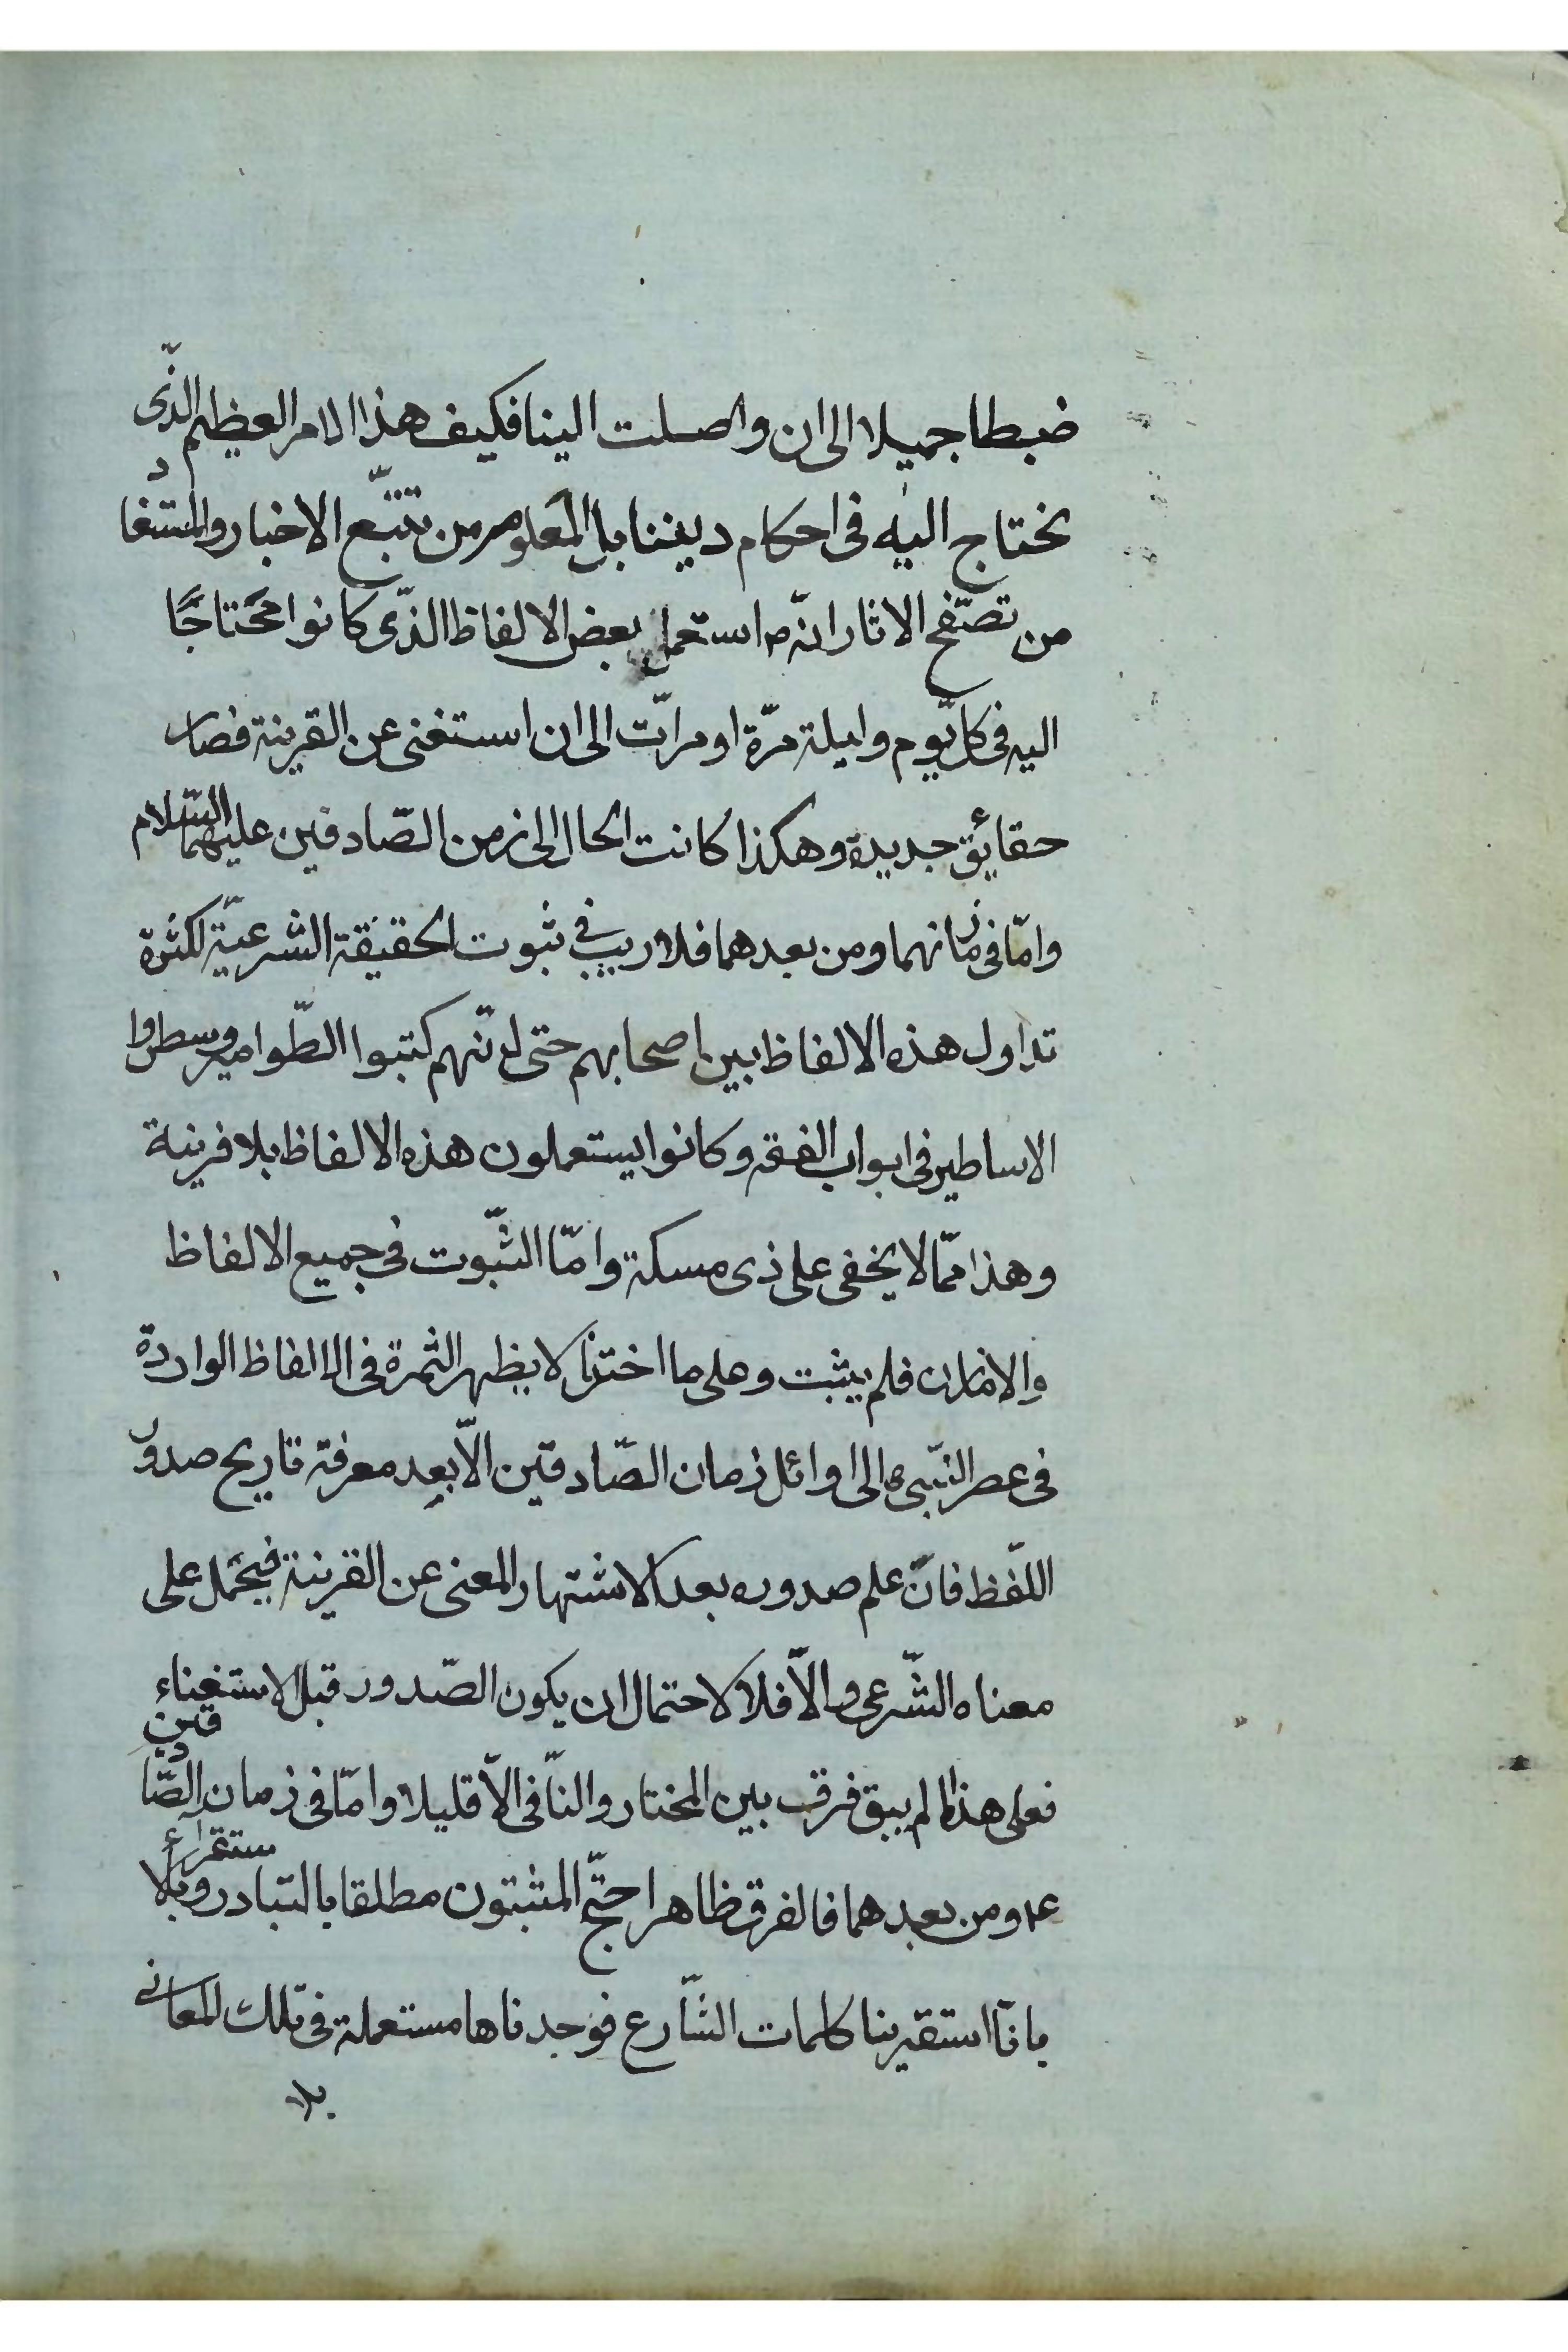 ضبطا جميلا الى ان واصلت الينا فكيف هذا الامر العظيم الذّى
نحتاج اليه فى احكام ديننا بل المعلوم من تتبّع الاخبار والمستفاد
من تصفّح الاثار انّه ص استعمل بعض الالفاظ الذّى كانوا محتاجًا
اليه فى كل يوم وليلة مرّة او مرات الى ان استغنى عن القرينة فصار
حقايق جديدة وهكذا كانت الحال الى زمن الصّادقين عليهما السّلام
وامّا فى زمانهما ومن بعدهما فلا ريب فى ثبوت الحقيقة الشرعيّة لكثرة
تداول هذه الالفاظ بين اصحابهم حتى انّهم كتبوا الطّوامير وسطروا
الاساطير فى ابواب الفقه وكانوا يستعملون هذه الالفاظ بلا قرينة
وهذا ممّا لا يخفى على ذى مسكة وامّا الثّبوت فى جميع الالفاظ
والازمان فلم يثبت وعلى ما اخترنا لا يظهر الثمرة فى الالفاظ الواردة
فى عصر النّبى ص الى اوائل زمان الصّادقين الّا بعد معرفة تاريخ صدور
اللّفظ فان علم صدوره بعد الاشتهار المعنى عن القرينة فيحمل على
معناه الشّرعى والّا فلا لاحتمال ان يكون الصّدور قبل الاستغناء
فعلى هذا لم يبق فرق بين المختار والنّافى الّا قليلا وامّا فى زمان الصّادقين
ع ومن بعدهما فالفرق ظاهر احتجّ المثبتون مطلقا بالتبادر وبالاستقراء
بانّا استقرينا كلمات الشّارع فوجدناها مستعملة فى تلك المعانى
بلا